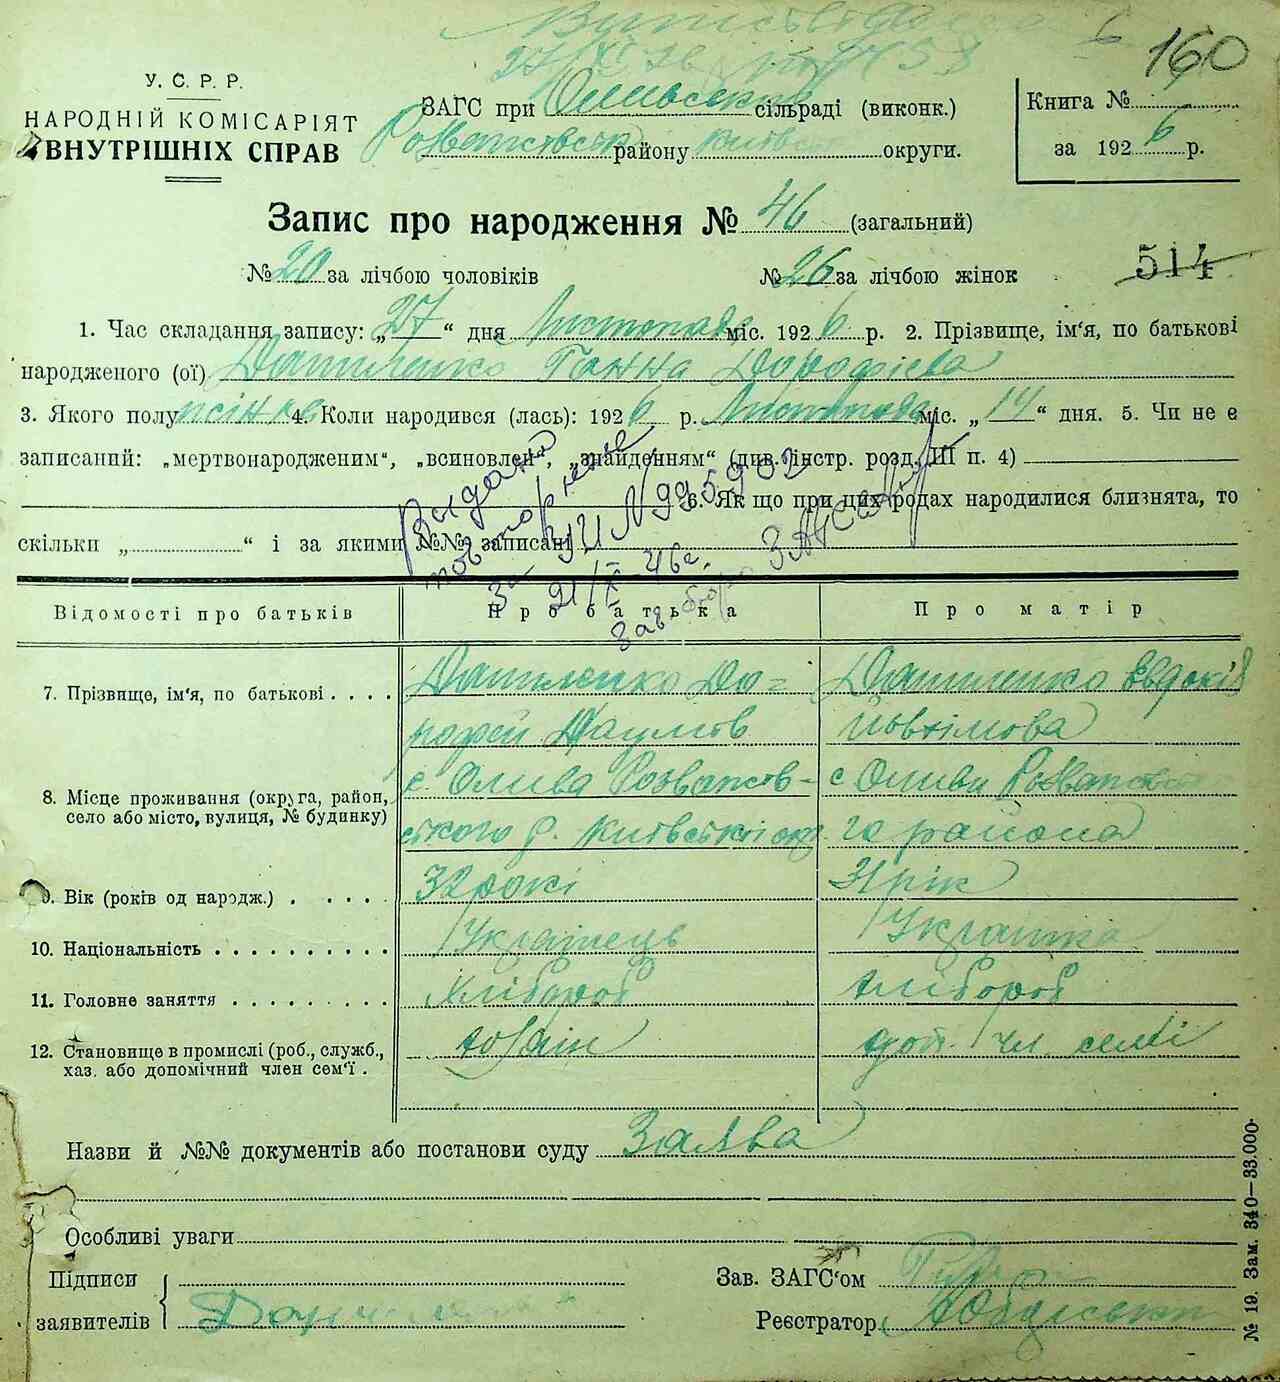 160
У.С.Р.Р.
НАРОДНІЙ КОМІСАРІЯТ
ВНУТРІШНІХ СПРАВ
ЗАГС при Оливській сільраді (виконк.)
Розважівськ району Київськ округи.
Книга №
за 1926 р.
Запис про народження № 46 (загальний)
№ 20 за лічбою чоловіків № 26 за лічбою жінок
514
1. Час складання запису: „27“ дня Листопада міс. 1926 р. 2. Прізвище, ім'я, по батькові
народженого (ої) Даниленко Ганна Дорофієва
3. Якого полу жіноч 4. Коли народився (лась): 1926 р. Листопада міс. „14“ дня. 5. Чи не є
записаний: „мертвонародженим“, „всиновлен“, „знайденням“ (див. інстр. розд. III п. 4)
6. Як що при цих родах народилися близнята, то
скільки „ “ і за якими №№ записані
Выдано
повторное
за УИ № 995902
21/X 46г.
Зав бюро ЗАГС
Відомості про батьків Про батька Про матір
7. Прізвище, ім'я, по батькові . . . . Даниленко До= Даниленко Евдокія
рофей Наумов Йовхімова
8. Місце проживання (округа, район, село або місто, вулиця, № будинку) с. Олива Розважів- с Олива Розважівсько
ського р. Київської окр. го района
9. Вік (років од народж.) . . . . . 32 рокі 31 рік
10. Національність . . . . . . . . . . Українець Українка
11. Головне заняття . . . . . . . . . Хлібороб Хлібороб
12. Становище в промислі (роб., служб., хаз. або допомічний член сем'ї . хозяін доп. чл. семі
Назви й №№ документів або постанови суду Заява
Особливі уваги
Підписи
заявителів
Зав. ЗАГС'ом
Реєстратор
№ 19. Зам. 340—33.000.